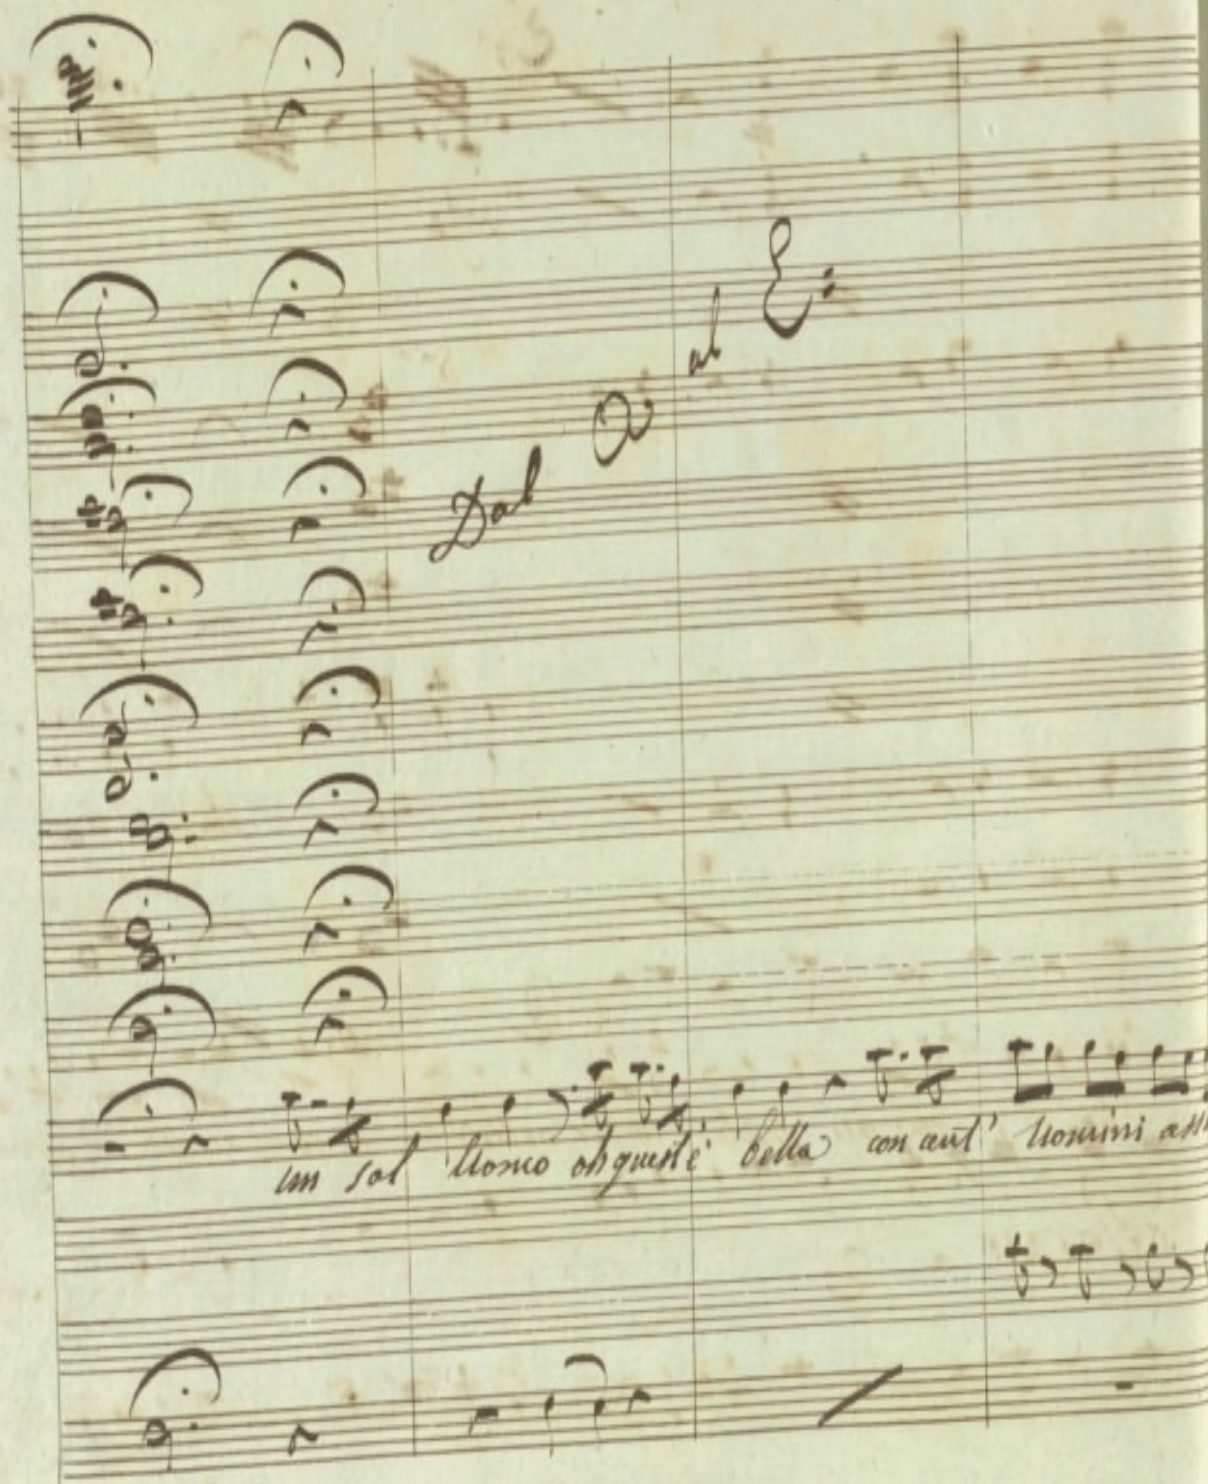 Dal a al E:
un sol Uomo oh quest'è bella con cent' Uomini